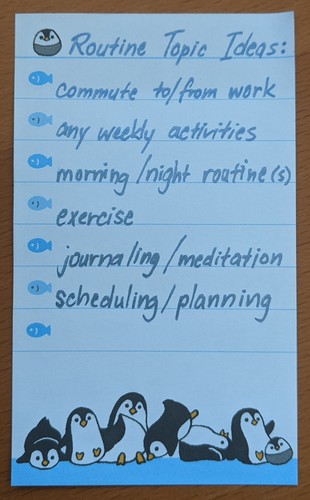 Routine Topic Ideas:
commute to/from work
any weekly activities
morning/night routine(s)
exercise
journaling/meditation
scheduling/planning